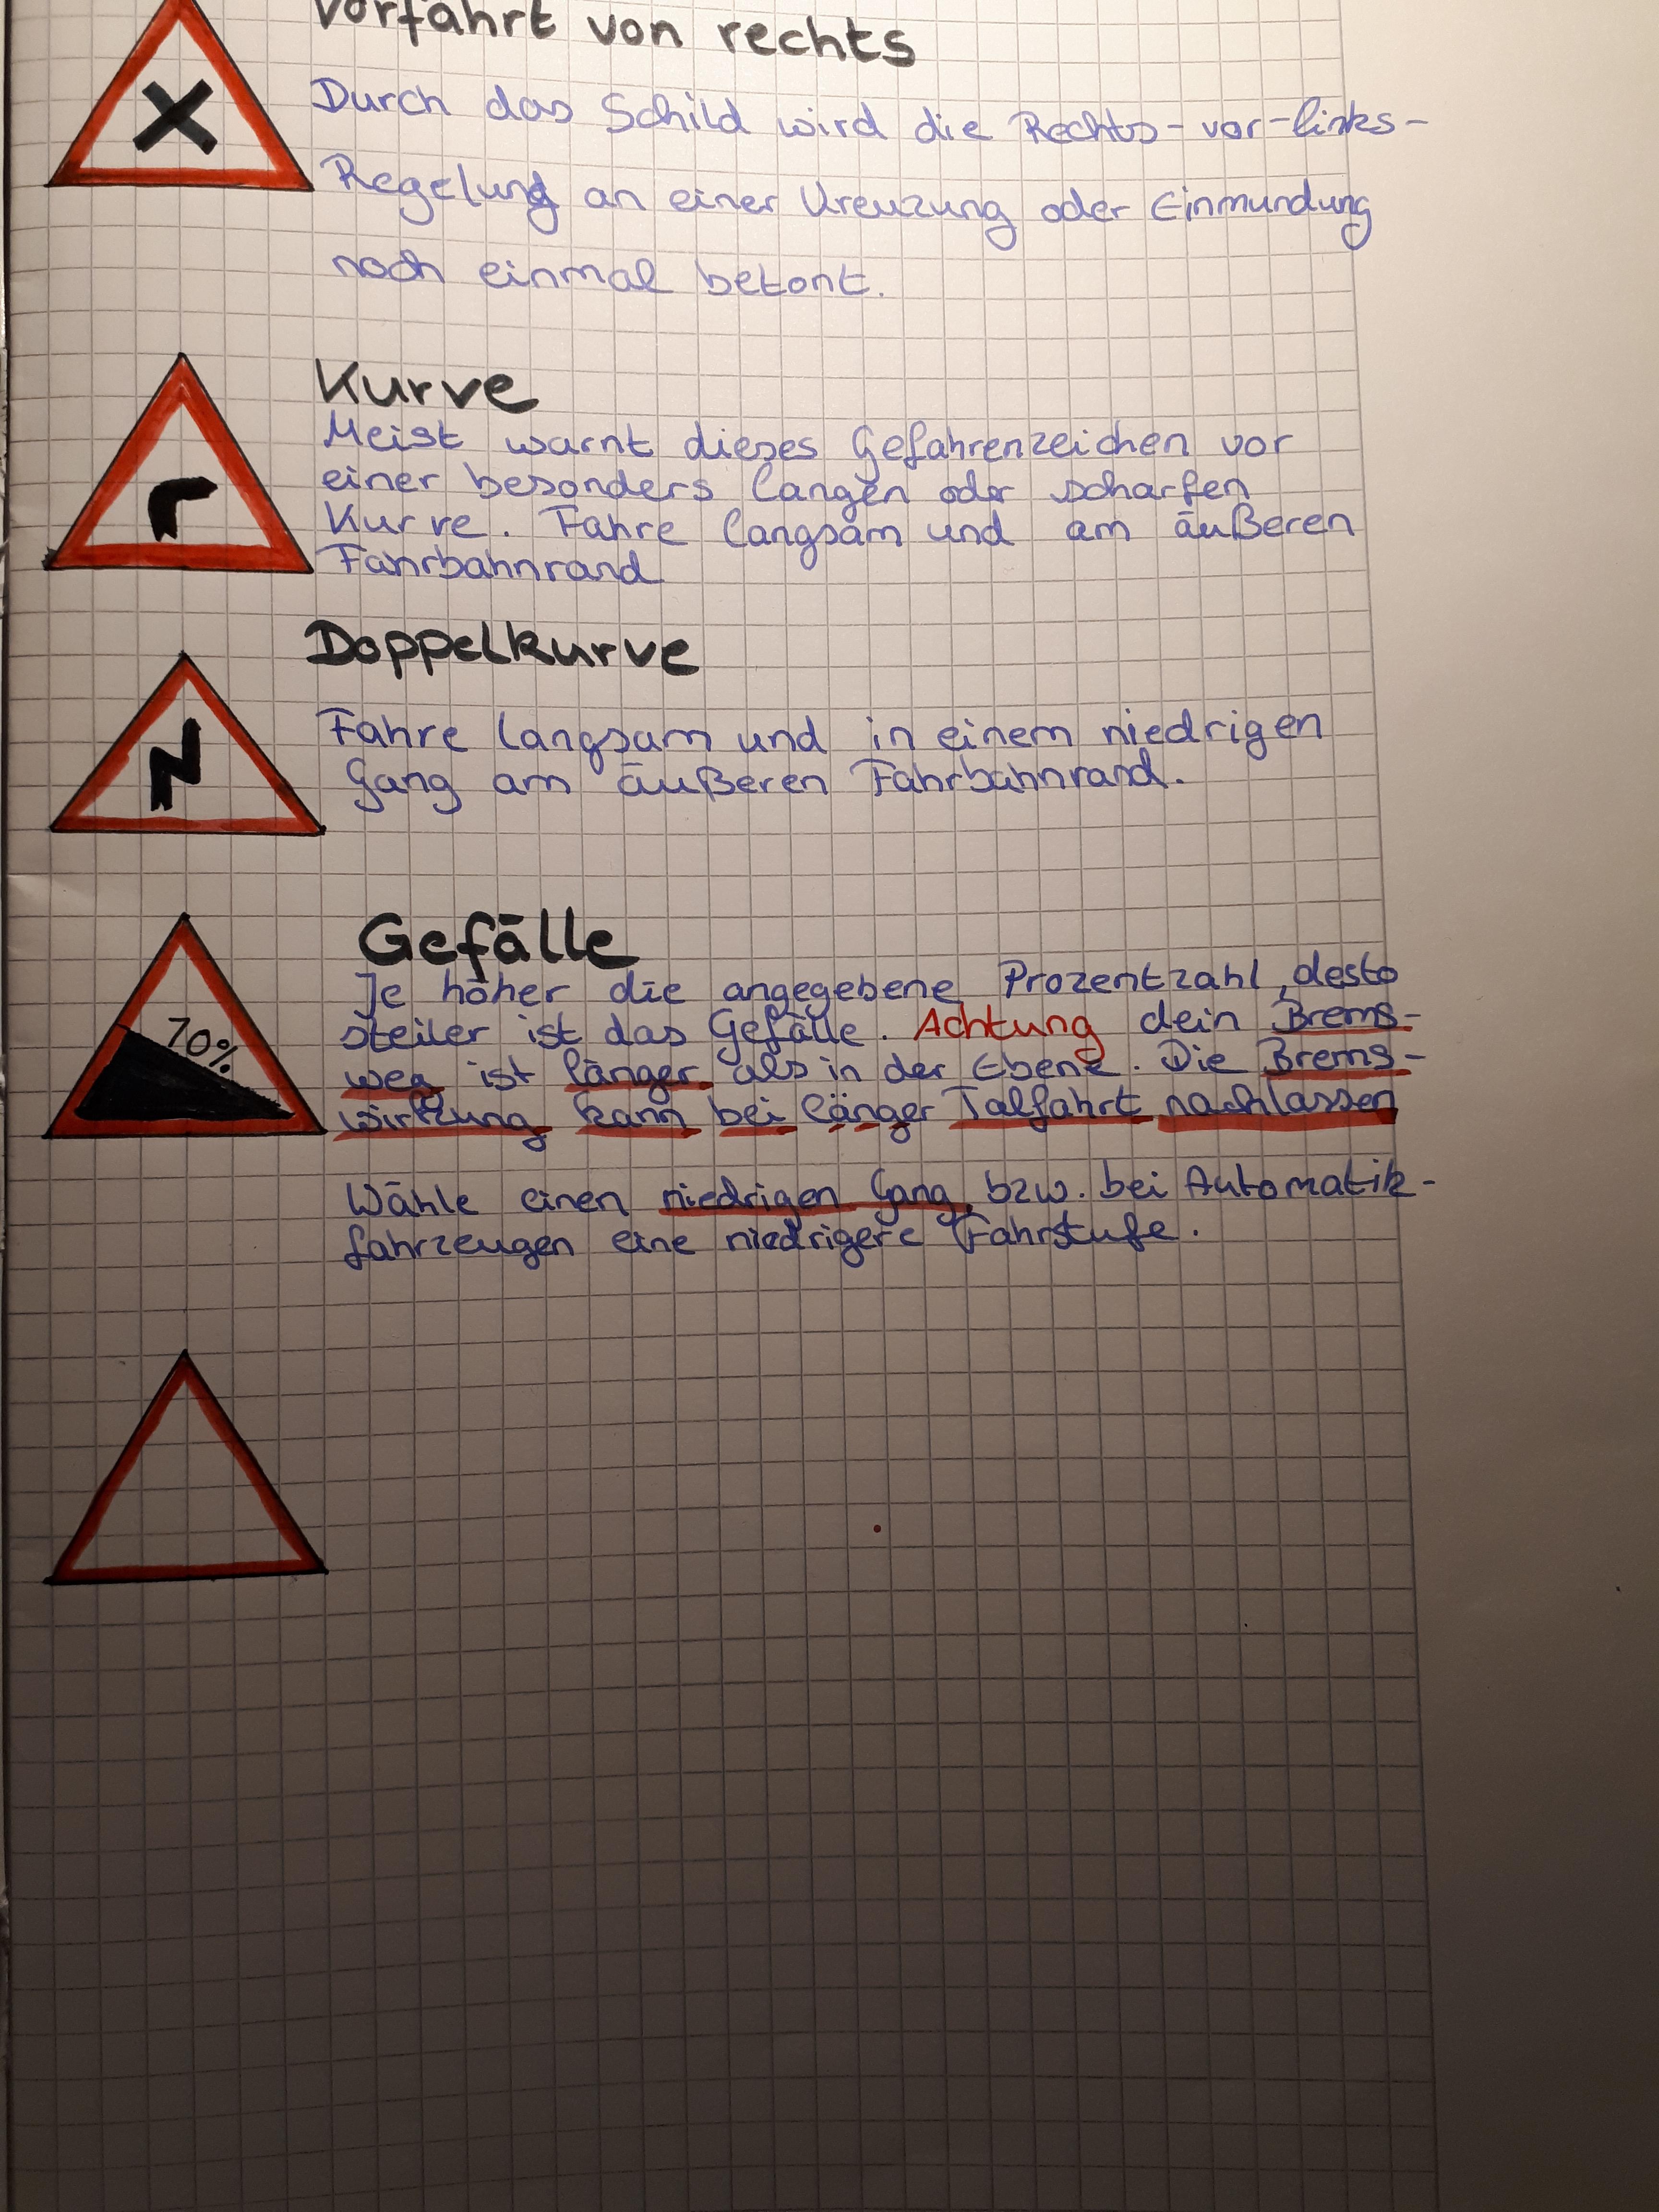 Vorfahrt von rechts
Durch das Schild wird die Rechts-vor-links-
Regelung an einer Kreuzung oder Einmundung
noch einmal betont.
Kurve
Meist warnt dieses Gefahrenzeichen vor
einer besonders langen oder scharfen
Kurve. Fahre langsam und am äußeren
Fahrbahnrand
Doppelkurve
Fahre langsam und in einem niedrigen
Gang am äußeren Fahrbahnrand.
Gefälle
Je höher die angegebene Prozentzahl, desto
steiler ist das Gefälle. Achtung dein Brems-
weg ist länger als in der Ebene. Die Brems-
wirkung kann bei länger Talfahrt nachlassen
10%
Wähle einen niedrigen Gang bzw. bei Automatik-
fahrzeugen eine niedrigere Fahrstufe.